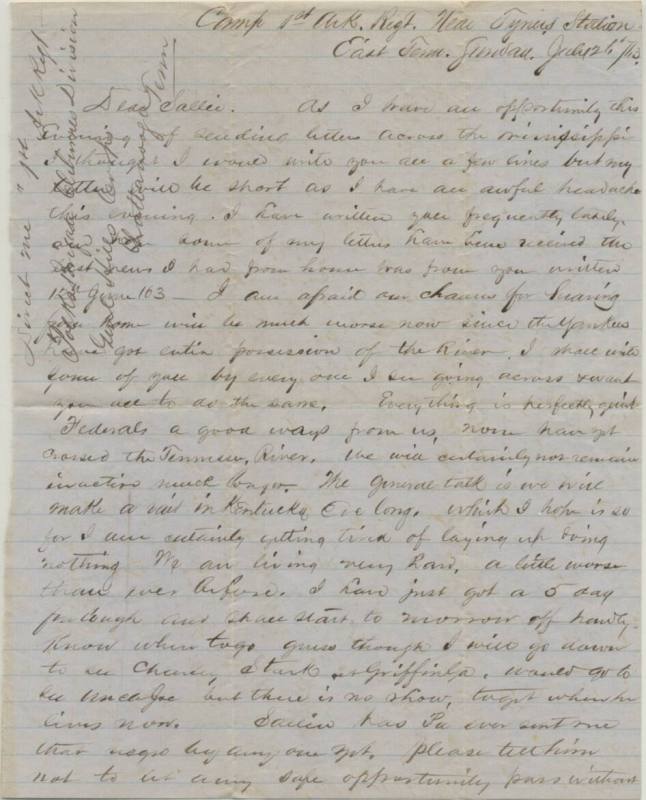 Camp 1st Ark. Regt. Near Tyners Station
East Tenn. Sunday. July 26th/63.
Dear Sallie. As I have an opportunity this
evening of sending letters across the Mississippi
I thought I would write you all a few lines but my
letter will be short as I have an awful headache
this evening. I have written you frequently lately.
some of my letters have been received the
last news I had from home was from you written
15th June /63 — I am afraid our chances for hearing
from home will be much worse now since the Yankees
have got entire possession of the River. I shall write
some of you by every one I see going across & want
you all to do the same. Everything is perfectly quiet
Federals a good ways from us, none have yet
crossed the Tennessee River. We will certainly not remain
inactive much longer. The general talk is we will
make a visit in Kentucky Ere long. which I hope is so
for I am certainly getting tired of laying up doing
nothing We are living very hard, a little worse
than ever before. I have just got a 5 day
furlough and shall start to morrow off hardly
know where to go guess though I will go down
to see Stark Griffin Ga. would go to
see Uncle Joe but there is no show, to get where he
lives now. Sallie has Pa ever sent me
that negro by any one yet. please tell him
not to let any safe opportunity pass without
Direct me "1st Ark Regt
Polks Brigade Cleburnes Division
Gen Hills Corps
Chattanooga Tenn